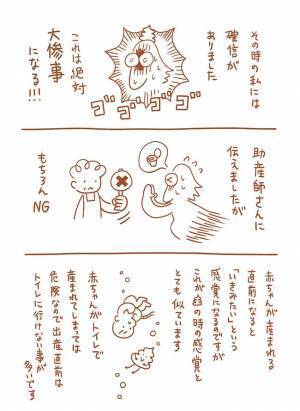 その時の私には
確信が
ありました
これは絶対
大惨事
になる!!!
ゴゴゴゴ
助産師さんに
伝えましたが
もちろん
NG
赤ちゃんが産まれる
直前になると
「いきみたい」という
感覚になるのですが
これが💩の時の感覚と
とても似ています
赤ちゃんがトイレで
産まれてしまっては
危険なので出産直前は
トイレに行けない事が
多いです